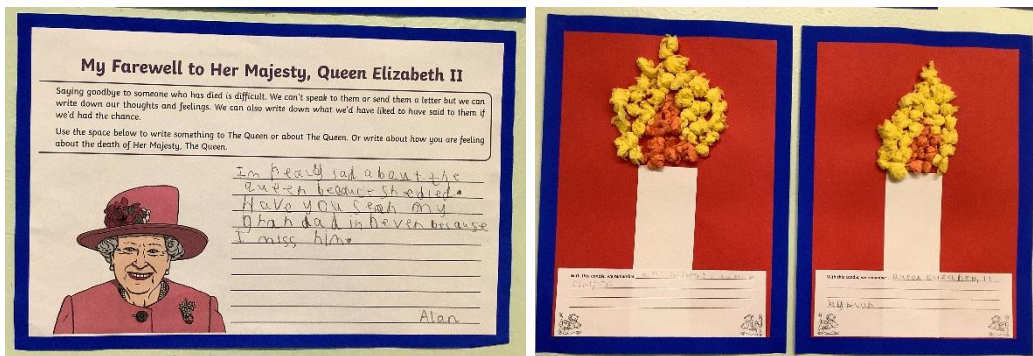 My Farewell to Her Majesty, Queen Elizabeth II
Saying goodbye to someone who has died is difficult. We can't speak to them or send them a letter but we can
write down our thoughts and feelings. We can also write down what we'd have liked to have said to them if
we'd had the chance.
Use the space below to write something to The Queen or about The Queen. Or write about how you are feeling
about the death of Her Majesty, The Queen.
Im realy sad about the
queen because she died.
Have you seen my
grandad in heven because
I miss him.
Alan
With this candle, we remember
With this candle, we remember QUEEN ELIZABETH II